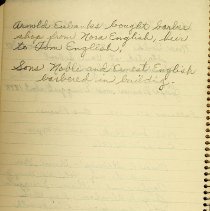 Arnold Eubanks bought barber
shop from Nora English, heir
to Tom English,
Sons Noble and Ernest English
barbered in building.